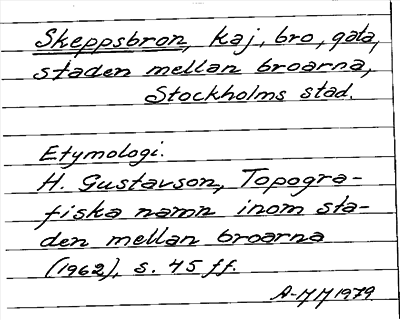 Skeppsbron, kaj, bro, gata,
staden mellan broarna,
Stockholms stad.
Etymologi.
H. Gustavson, Topogra-
fiska namn inom sta-
den mellan broarna
(1962), s. 45 ff.
A-MM 1979